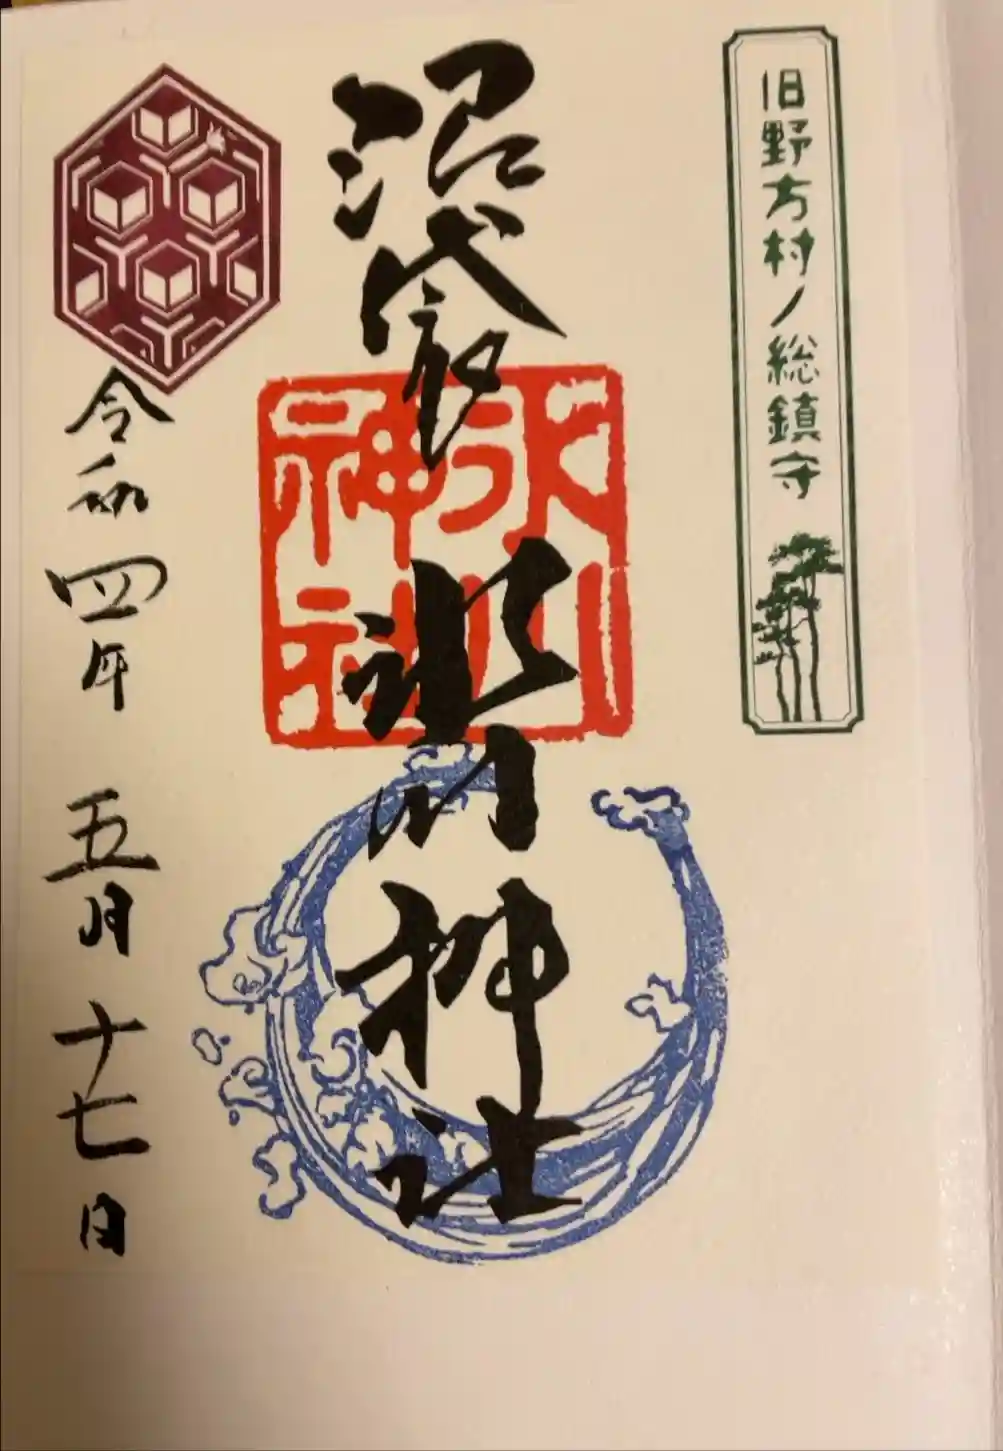 旧野方村ノ総鎮守
沼袋氷川神社
氷川神社
令和四年五月十七日